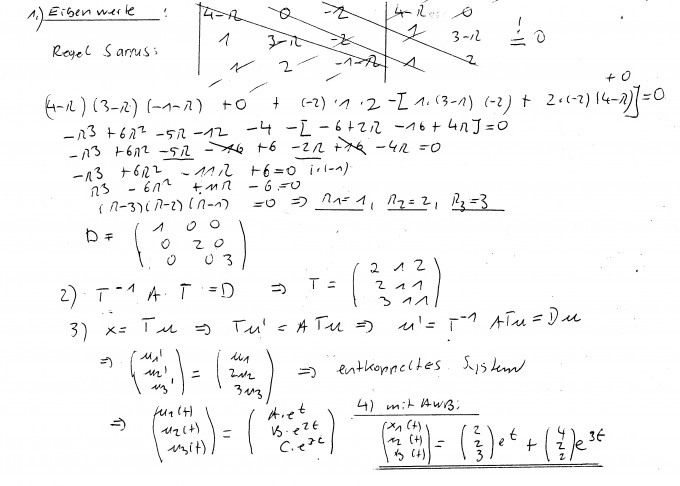 1.) Eigenwerte : | 4-λ 0 -2 | 4-λ 0
Regel Sarrus: | 1 3-λ -2 | 1 3-λ | != 0
| 1 2 -1-λ | 1 2
(4-λ)(3-λ)(-1-λ) +0 + (-2)·1·2 -[1·(3-λ)(-2) + 2·(-2)(4-λ) +0]=0
-λ3 +6λ2 -5λ -12 -4 -[-6+2λ -16+4λ]=0
-λ3 +6λ2 -5λ -16 +6 -2λ +16 -4λ =0
-λ3 +6λ2 -11λ +6=0 |:(-1)
λ3 -6λ2 +11λ -6=0
(λ-3)(λ-2)(λ-1) =0 => λ1=1, λ2=2, λ3=3
D = ( 1 0 0
0 2 0
0 0 3 )
2) T^-1 A·T =D => T = ( 2 1 2
2 1 1
3 1 1 )
3) x= Tu => Tu' = ATu => u' = T^-1 ATu = Du
=> ( u1' u2' u3' ) = ( u1 2u2 3u3 ) => entkoppeltes System
=> ( u1(t) u2(t) u3(t) ) = ( A·e^t B·e^2t C·e^3t )
4) mit AWB:
( x1(t) x2(t) x3(t) ) = ( 2 2 3 ) e^t + ( 4 2 2 ) e^3t